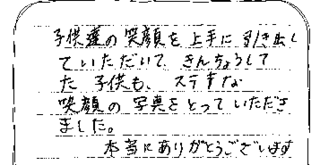 子供達の笑顔を上手に引き出し
ていただいて、きんちょうして
た子供も、ステキな
笑顔の写真をとっていただき
ました。
本当にありがとうございます